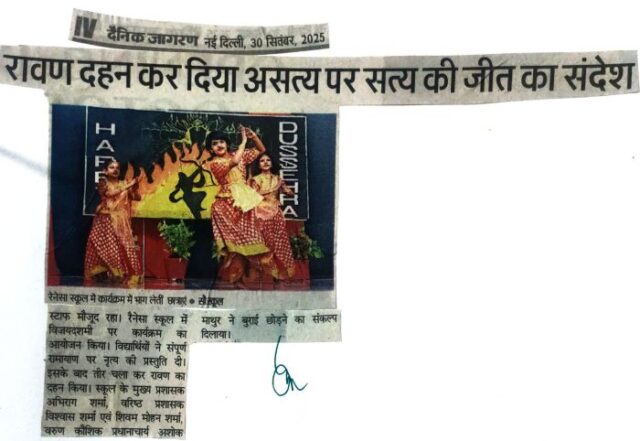 IV दैनिक जागरण नई दिल्ली, 30 सितंबर, 2025
रावण दहन कर दिया असत्य पर सत्य की जीत का संदेश
HAPP
DUSSEHRA
रेनेसा स्कूल में कार्यक्रम में भाग लेतीं छात्राएं • सौ. स्कूल
स्टाफ मौजूद रहा। रैनेसा स्कूल में
विजयदशमी पर कार्यक्रम का
आयोजन किया। विद्यार्थियों ने संपूर्ण
रामायाण पर नृत्य की प्रस्तुति दी।
इसके बाद तीर चला कर रावण का
दहन किया। स्कूल के मुख्य प्रशासक
अभिराग शर्मा, वरिष्ठ प्रशासक
विश्वास शर्मा एवं शिवम मोहन शर्मा,
वरुण कौशिक प्रधानाचार्य अशोक
माथुर ने बुराई छोड़ने का संकल्प
दिलाया।